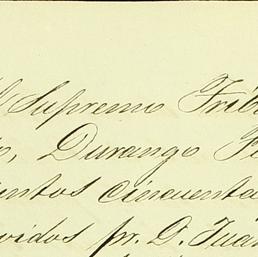 l Supremo Trib
o, Durango Fe
ientos cincuenta
vidos pr. D. Juan